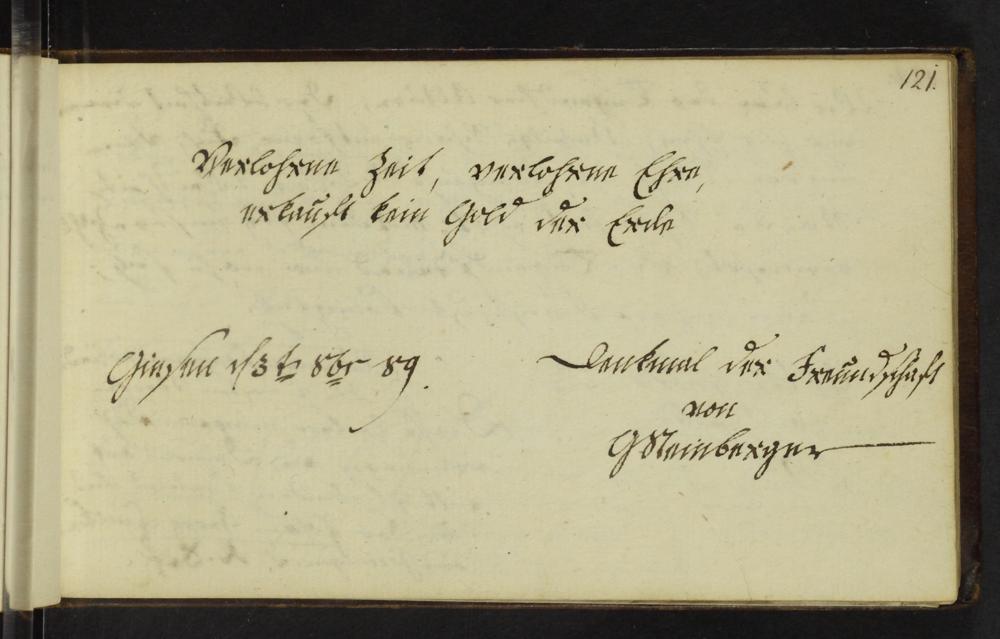 121.
Verlohrne Zeit, verlohrne Ehre,
erkauft kein Gold der Erde
Giessen d 3t 8br 89.
Denkmal der Freundschaft
von
GSteinberger